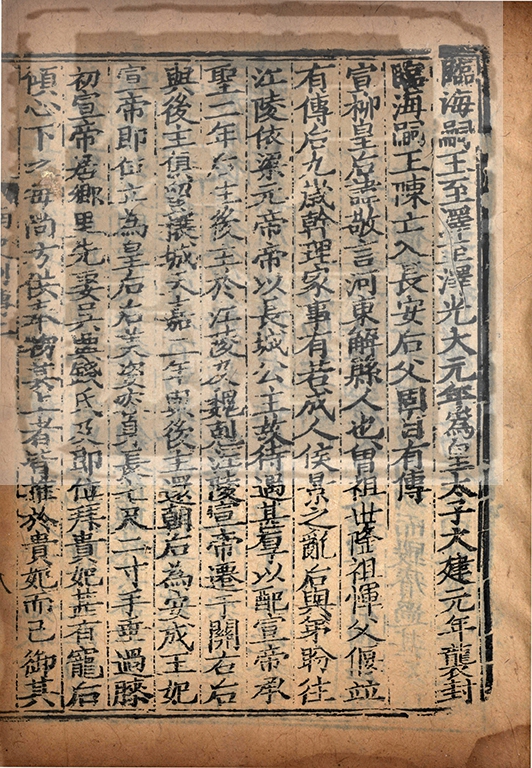 臨海嗣王至澤至澤光大元年為皇太子太建元年襲封
臨海嗣王陳亡入長安后父固自有傳
宣柳皇后諱敬言河東解縣人也曾祖世隆祖惲父偃並
有傳后九歲幹理家事有若成人侯景之亂后與弟盼往
江陵依梁元帝帝以長城公主故待遇甚厚以配宣帝承
聖二年后生後主於江陵及魏剋江陵宣帝遷于關右后
與後主俱留穰城天嘉二年與後主還朝后為安成王妃
宣帝即位立為皇后后美姿容身長七尺二寸手垂過膝
初宣帝居鄉里先娶吳興錢氏及即位拜貴妃甚有寵后
傾心下之每尚方供奉物其上者皆推於貴妃而己御其
八